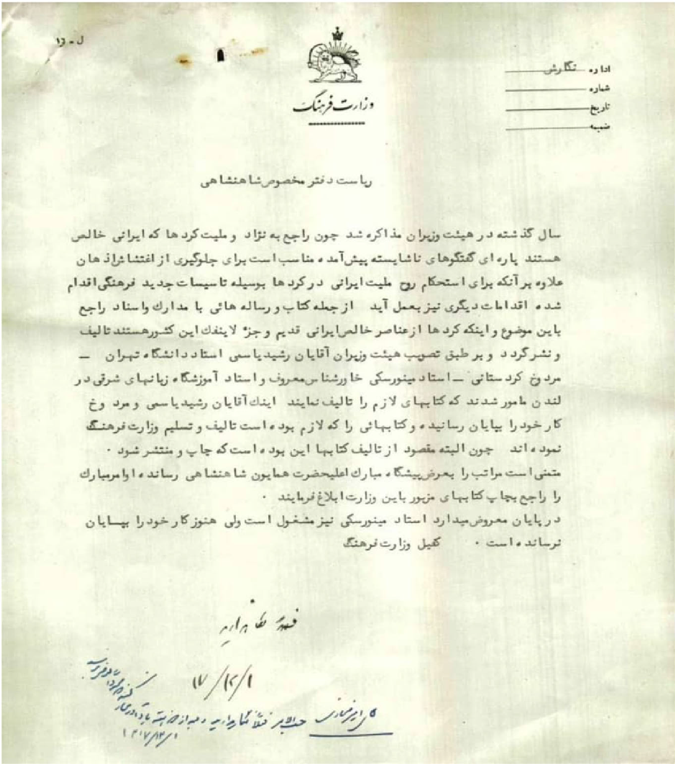 ل - ۱۶
اداره نگارش
شماره
تاریخ
ضمیمه
وزارت فرهنگ
ریاست دفتر مخصوص شاهنشاهی
سال گذشته در هیئت وزیران مذاکره شد چون راجع به نژاد و ملیت کردها که ایرانی خالص
هستند پاره‌ای گفتگوهای ناشایسته پیش آمده مناسب است برای جلوگیری از اغتشاش اذهان
علاوه بر آنکه برای استحکام روح ملیت ایرانی در کردها بوسیله تاسیسات جدید فرهنگی اقدام
شده اقدامات دیگری نیز بعمل آید از جمله کتاب و رساله هائی با مدارك و اسناد راجع
باین موضوع و اینکه کردها از عناصر خالص ایرانی قدیم و جزء لاینفك این کشور هستند تالیف
و نشر گردد و بر طبق تصویب هیئت وزیران آقایان رشید یاسمی استاد دانشگاه تهران –
مردوخ کردستانی – استاد مینورسکی خاورشناس معروف و استاد آموزشگاه زبانهای شرقی در
لندن مامور شدند که کتابهای لازم را تالیف نمایند اینك آقایان رشید یاسمی و مردوخ
کار خود را بپایان رسانیده و کتابهائی را که لازم بوده است تالیف و تسلیم وزارت فرهنگ
نموده اند چون البته مقصود از تالیف کتابها این بوده است که چاپ و منتشر شود ۰
متمنی است مراتب را بعرض پیشگاه مبارك اعلیحضرت همایون شاهنشاهی رسانده اوامر مبارك
را راجع بچاپ کتابهای مزبور باین وزارت ابلاغ فرمایند ۰
در پایان معروض میدارد استاد مینورسکی نیز مشغول است ولی هنوز کار خود را بپایان
نرسانده است ۰ کفیل وزارت فرهنگ
۱۷/۱۲/۱
۱۳۱۷/۱۲/۱